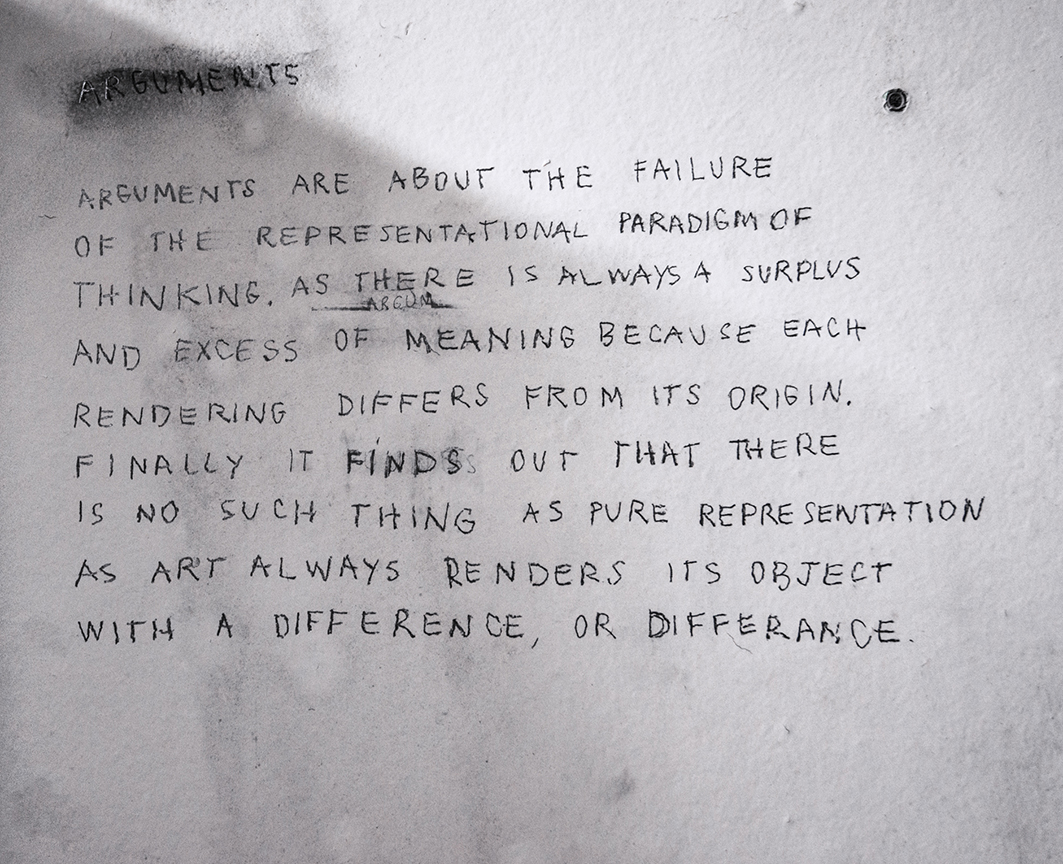 ARGUMENTS
ARGUMENTS ARE ABOUT THE FAILURE
OF THE REPRESENTATIONAL PARADIGM OF
THINKING. AS THERE IS ALWAYS A SURPLUS
ARGUM
AND EXCESS OF MEANING BECAUSE EACH
RENDERING DIFFERS FROM ITS ORIGIN.
FINALLY IT FINDS OUT THAT THERE
IS NO SUCH THING AS PURE REPRESENTATION
AS ART ALWAYS RENDERS ITS OBJECT
WITH A DIFFERENCE, OR DIFFERANCE.